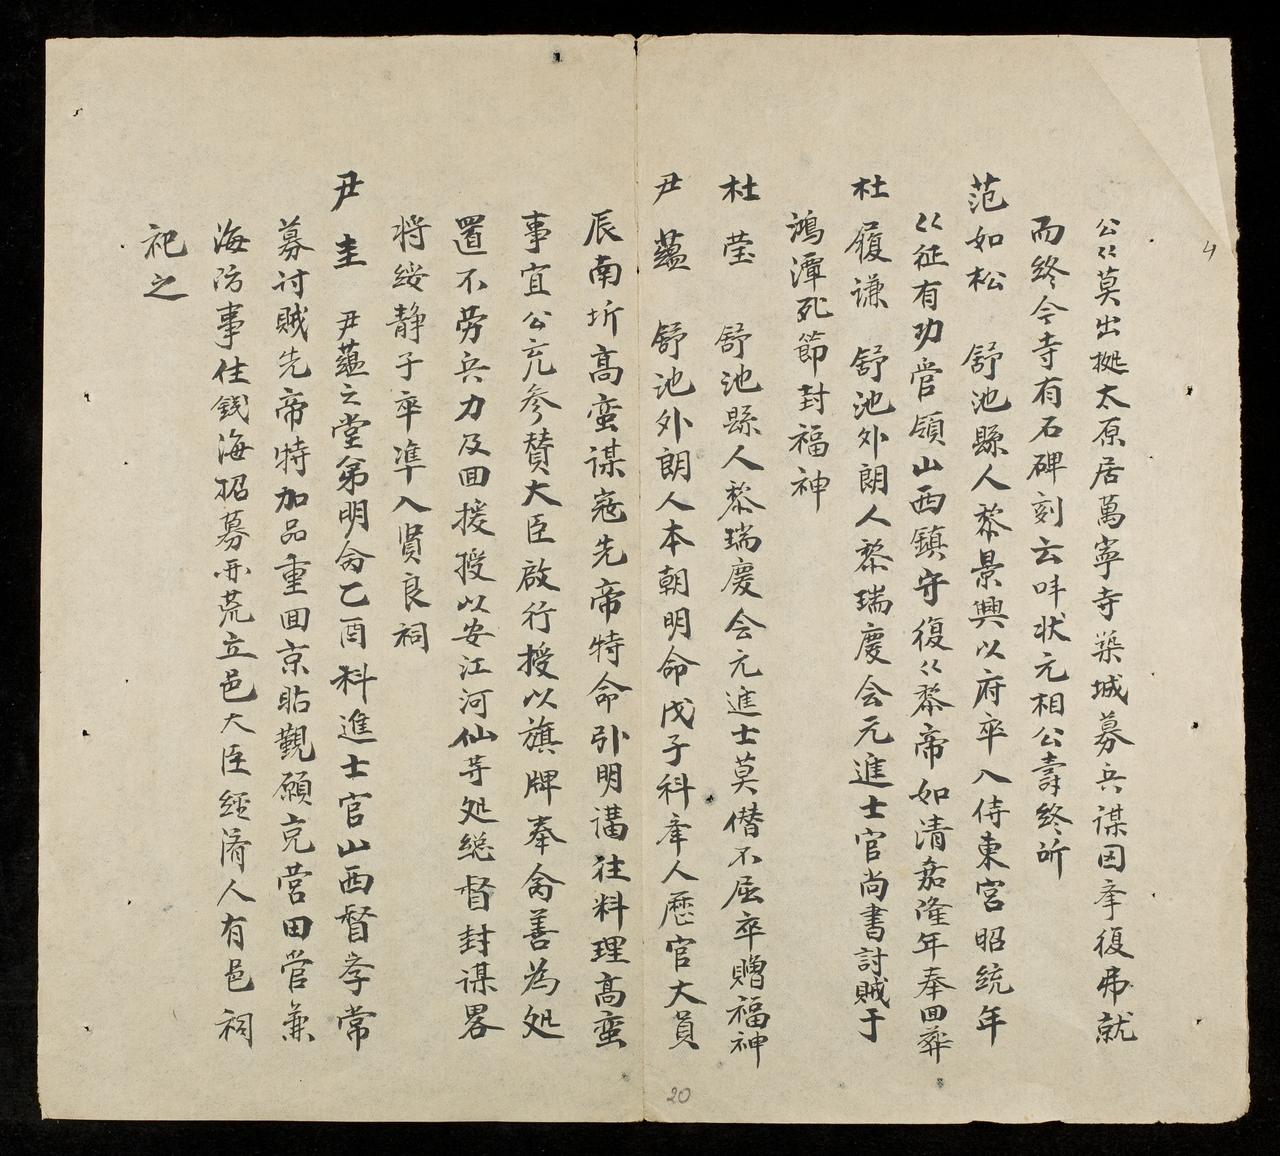 公〻莫出摡太原居萬寧寺築城募兵謀因峯復弗就
而終今寺有石碑刻云吽状元相公壽終所
范如松 舒池縣人黎景興以府卒入侍東宮昭統年
〻征有功管領山西鎮守復〻黎帝如清嘉隆年奉回葬
杜履谦 舒池外朗人黎瑞慶会元進士官尚書討賊于
鴻潭死節封福神
杜莹 舒池縣人黎瑞慶会元進士莫僭不屈卒贈福神
尹蘊 舒池外朗人本朝明命戊子科峯人歴官大員
辰南圻高蛮謀寇先帝特命引明講往料理高蛮
事宜公充参賛大臣啟行授以旗牌奉禽善為処
置不劳兵力及回援授以安江河仙等処総督封謀畧
将绥静子卒準入賢良祠
尹圭 尹蘊之堂弟明命乙酉科進士官山西督孛常
募讨賊先帝特加品重回京貼觐願充营田管兼
海防事仕錢海招募开荒立邑大臣經濟人有邑祠
祀之
4
20